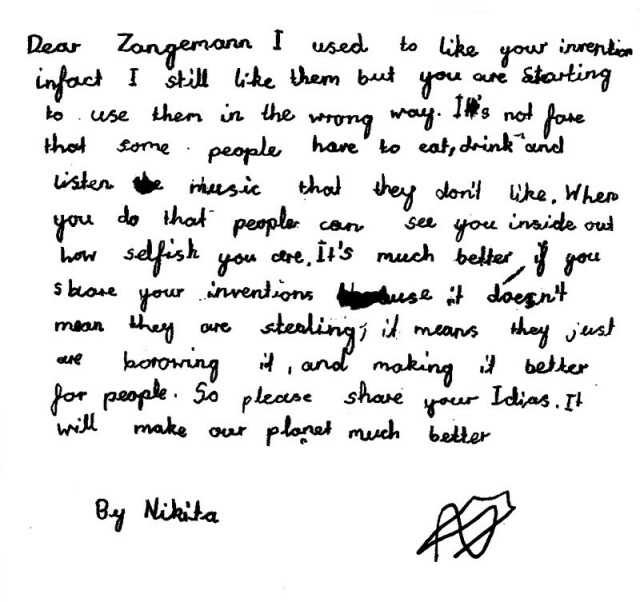 Dear Zangemann I used to like your invention
infact I still like them but you are Starting
to use them in the wrong way. It's not fare
that some people have to eat, drink and
listen music that they don't like. When
you do that people can see you inside out
how selfish you are. It's much better if you
share your inventions because it doesn't
mean they are stealing, it means they just
are borowing it, and making it better
for people. So please share your Idias. It
will make our planet much better
By Nikita